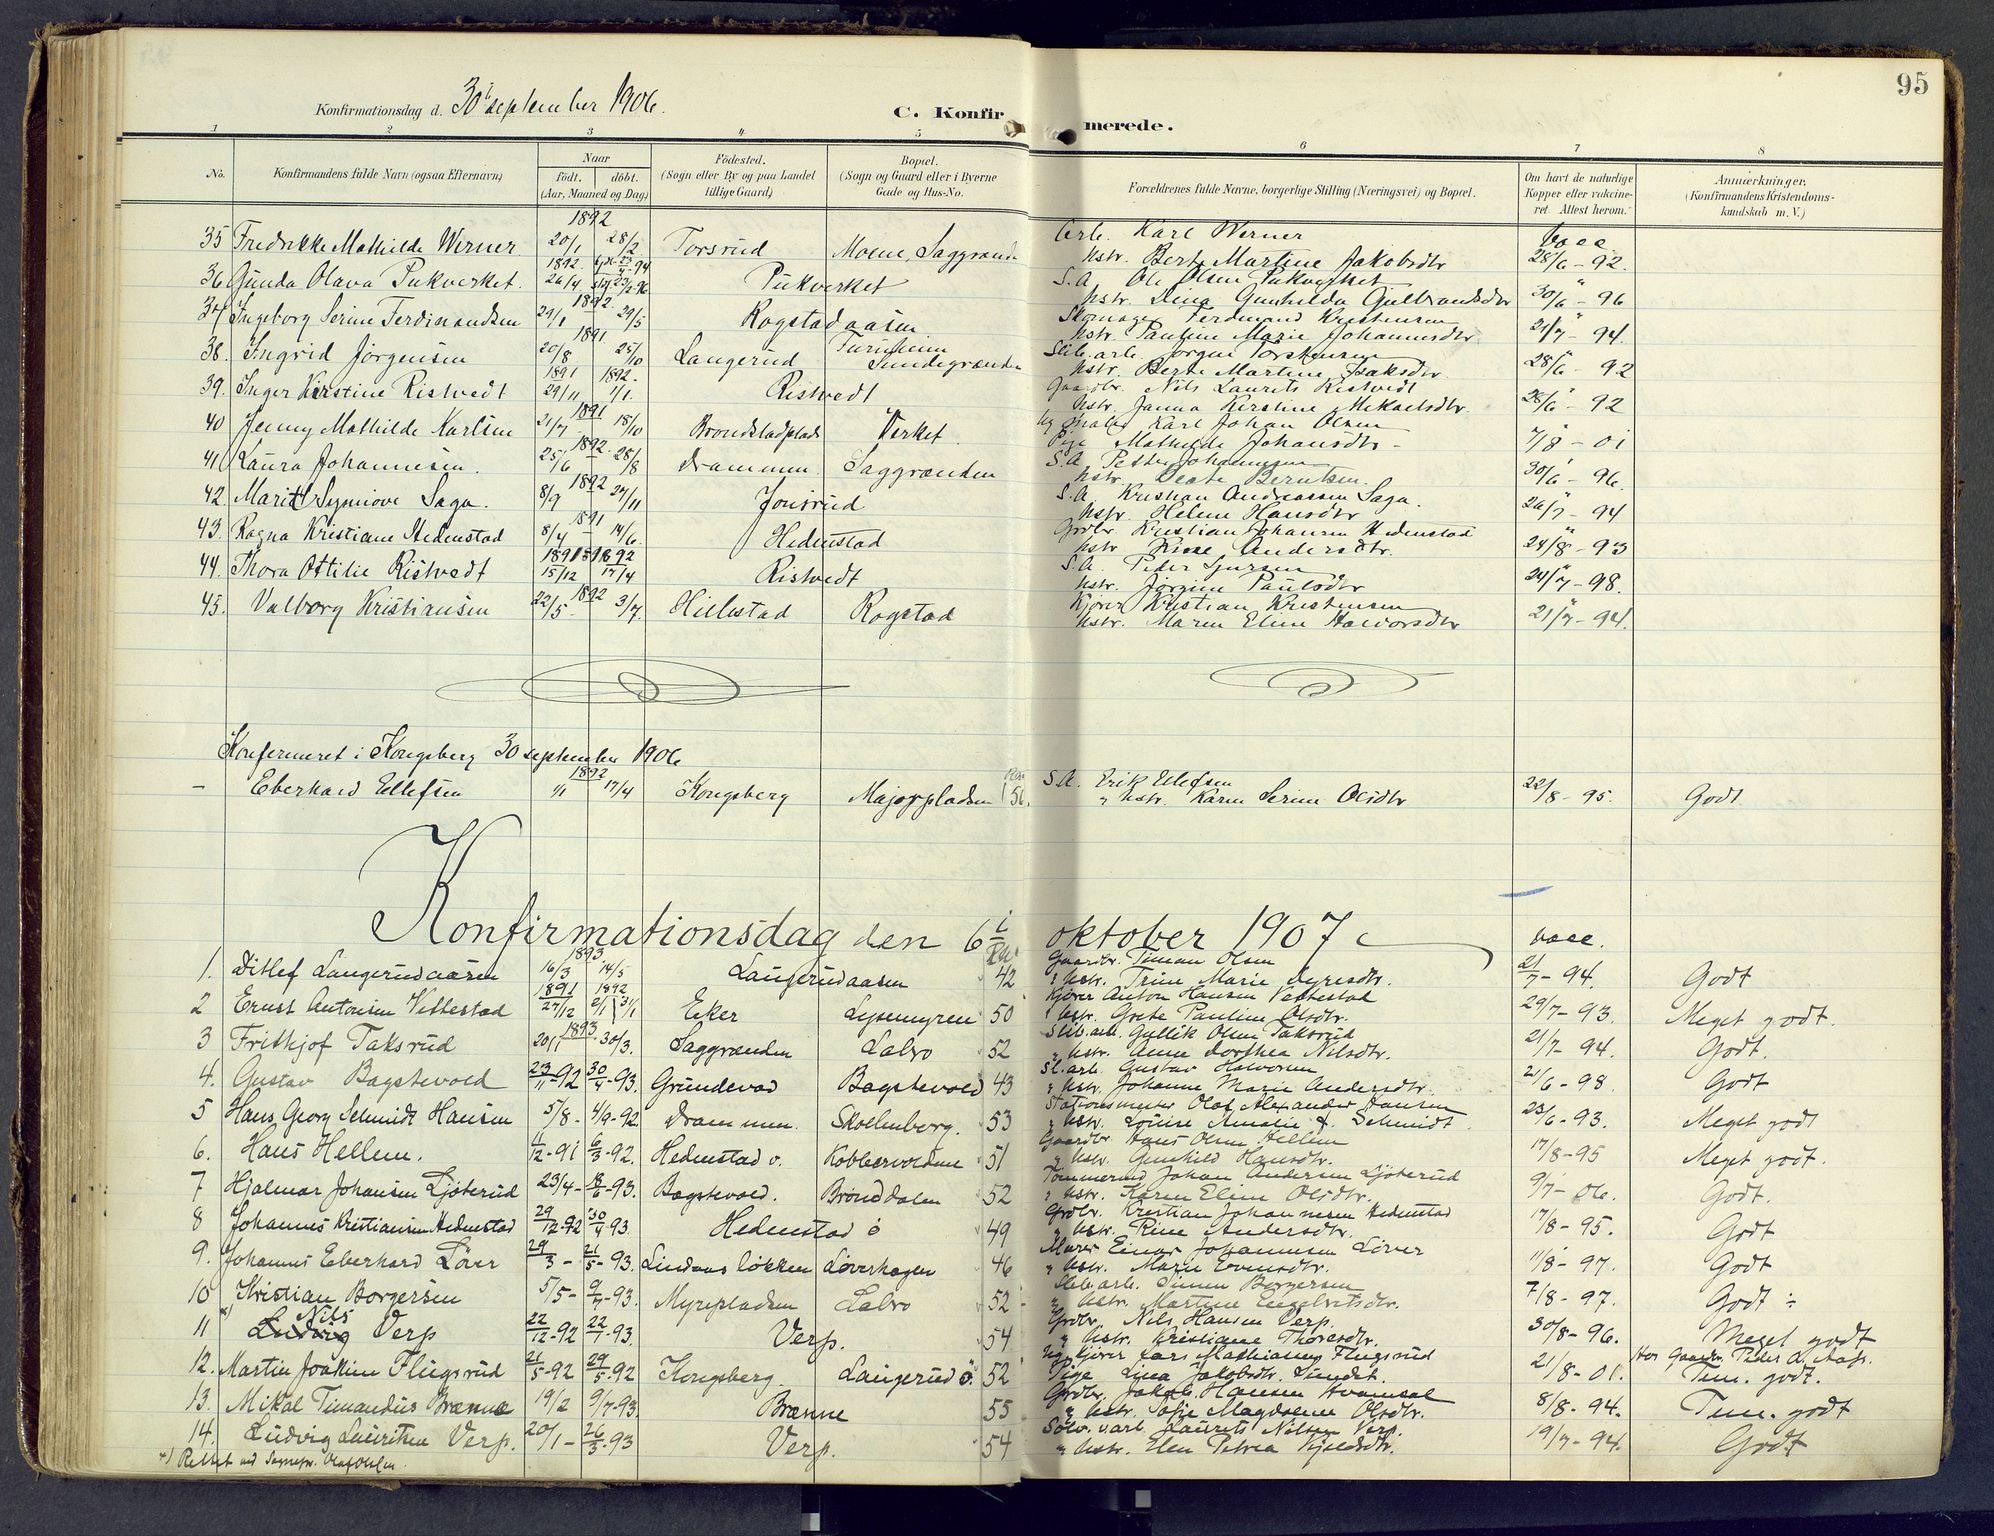 95
Konfirmationsdag d. 30 september 1906.
C. Konfirmerede.
1 2 3 4 5 6 7 8
No. Konfirmandens fulde Navn (ogsaa Efternavn) Naar födt. döbt. (Aar, Maaned og Dag) Födested. (Sogn eller By og paa Landet tillige Gaard) Bopæl. (Sogn og Gaard eller i Byerne Gade og Hus-No.) Forældrenes fulde Navne, borgerlige Stilling (Næringsvei) og Bopæl. Om havt de naturlige Kopper eller vakcineret Attest herom. Anmærkninger. (Konfirmandens Kristendomskundskab m. V.)
35 Fredrikke Mathilde Werner 1892 20/1 28/2 Torsrud Moene, Saggrenda Arb. Karl Werner vacc.
Hstr. Berte Martine Jakobsdtr 28/6 - 92.
36 Gunda Olava Pukverket. 1892. 26/4 Pukverket S.A Ole Olsen Pukverket
Hstr. Lina Gunhilda Gulbrandsdtr 30/6 - 96
37 Ingeborg Serine Ferdinandsen 1892. 29/1 29/5 Rogstadaasen Skomager Ferdinand Kristensen
Hstr. Pauline Marie Johannesdtr 21/7 - 94.
38. Ingrid Jörgensen 1891 20/8 25/10 Langerud Furuheim Sundegrænden Slib.arb. Jörgen Torstensen
Hstr. Berte Martine Isaksdtr. 28/6 - 92
39. Inger Kirstine Ristvedt 1891 1892. 29/11 1/1. Ristvedt Gaardbr. Nils Laurits Ristvedt
Hstr. Janna Kirstine Mikaelsdtr. 28/6 - 92
40 Jenny Mathilde Karlsen 1891 21/7 18/10 Brondstadplads Verket. Ug. Maler Karl Johan Olsen
Pige Mathilde Johansdtr - 7/8 - 01
41. Laura Johannesen. 1892. 25/6 28/8 Drammen. Saggrænden S.A Petter Johannesen
Hstr. Beate Berntsen. 30/6 - 96.
42. Marit Synniöve Saga. 1892 8/9 27/11 Jonsrud S.A. Kristian Andreassen Saga.
Hstr. Helene Hansdtr 26/7 - 94
43. Ragna Kristiane Hedenstad 1891 8/4 - 14/6. Hedenstad Grdbr. Kristian Johansen Hedenstad
Hstr. Rine Andersdtr. 24/8 - 93
44. Thora Ottilie Ristvedt 1891 1892 15/12 17/4 Ristvedt S.A. Peder
Hstr. Jörgine Paulsdtr 24/7 - 98.
45. Valborg Kristiansen 1892 22/5 - 3/7. Hillestad Rogstad Kjører Kristian Kristensen
Hstr. Maren Eline Halvorsdtr 21/7 - 94.
Konfirmeret i Kongsberg 30 september 1906
- Eberhard Ellefsen 1892 1/1 17/4 Kongsberg Majorpladsen 56. S.A. Erik Ellefsen
" Hstr. Karen Serine Olsdtr 22/8 - 95. Godt.
Konfirmationsdag den 6te oktober 1907 vacc.
1. Ditlef Langerudaasen 1893 16/3 14/5 Langerudaasen 42 Gaardbr. Timan Olsen
" Hstr. Trine Marie Syresdtr. 21/7 - 94. Godt
2 Ernst Antonsen Vittestad 1891 1892 27/12 31/1 Eker Lysemyren 50 Kjører Anton Hansen Vettestad
" Hstr. Grete Pauline Olsdtr. 29/7 - 93. Meget godt.
3 Frithjof Taksrud 1893. 20/1 30/3. Saggrænden Labro 52 Slib.arb. Gullik Olsen Taksrud
" Hstr. Anne Dorthea Nilsdtr. 21/7 - 94. Godt.
4. Gustav Bagstevold 23/11-92 30/4-93. Grundevad Bagstevold 43 Sl.arb. Gustav Halvorsen
" Hstr. Johanne Marie Andersdtr. 21/6 - 98. Godt
5 Hans Georg Schmidt Hansen 5/8 - 4/9-92. Drammen. Skollenborg. 53 Stationsmester Olaf Alexander Hansen
" Hstr. Louise Amalie f. Schmidt. 23/6 - 93. Meget godt
6. Hans Hellem. 11/12-91 6/3-92. Hedenstad v. Kobbervolden 51 Gaardbr. Hans Olsen Hellem
" Hstr. Gunhild Hansdtr. 17/8 - 95 Meget godt.
7 Hjalmar Johansen Ljöterud 23/4 - 18/6-93. Bagstevold. Bronddalen 52 Tømmermd Johan Andersen Ljöterud
" Hstr. Karen Eline Olsdtr. 9/7 - 06. Godt.
8 Johannes Kristiansen Hedenstad 29/12-92 30/4 93. Hedenstad ö 49 Grdbr. Kristian Johannesen Hedenstad
" Hstr. Rine Andersdtr. 17/8 - 95. Godt
9. Johannes Eberhard Löver 29/3 - 21/5-93. Lindaas lökken Löverhagen 46 Murer Einar Johannesen Löver
" Hstr. Marie Evensdtr. 11/8 - 97. Godt
10 Kristian Borgersen 5/5 - 9/7-93. Myrepladsen Labro 52 Slib.arb. Simen Borgersen
" Hstr. Martine Engebretsdtr. 7/8 - 97. Godt ÷
11 *) Ludvig Nils Verp 22/12-92 22/1-93. Verp. 54 Grdbr. Nils Hansen Verp.
" Hstr. Kristiane Thoresdtr. 30/8 - 96. Meget godt
12. Martin Joakim Flugsrud 21/5-92 29/5-92 Kongsberg. Langerud ö. 52 Ug. kjører Lars Mathiasen Flugsrud
Pige Lina Jakobsdtr. Lundet. 21/8 - 01. Tem. godt.
13. Mikal Timandus Brænne 19/2 9/7-93. Brænne 55 Grdbr. Jakob Hansen
" Hstr. Sofie Magdalene Olsdtr. 8/8 - 94. Tem. godt
14. Ludvig Lauritsen Verp. 20/1 - 26/3-93 Verp. 54 Sölv.arb. Laurits Nilsen Verp.
" Hstr. Elen Petrea Kjeldsdtr. 19/7 - 94. Godt
*) Rettet ved Sognepr.